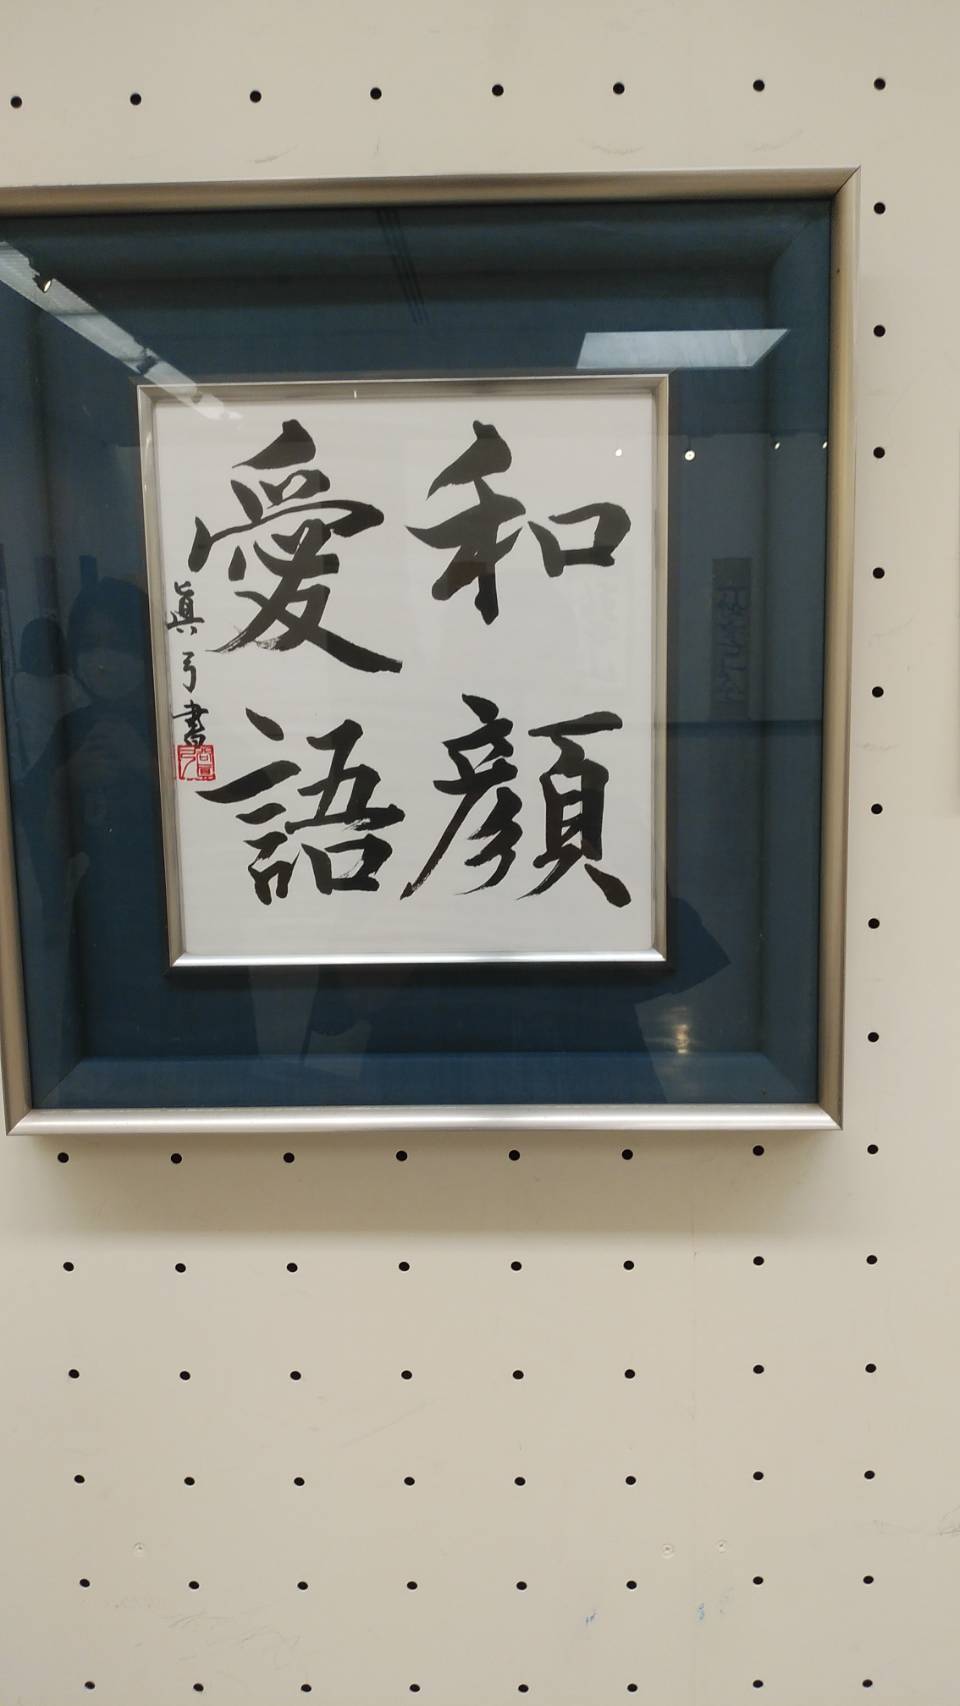 和顔
愛語
眞弓書